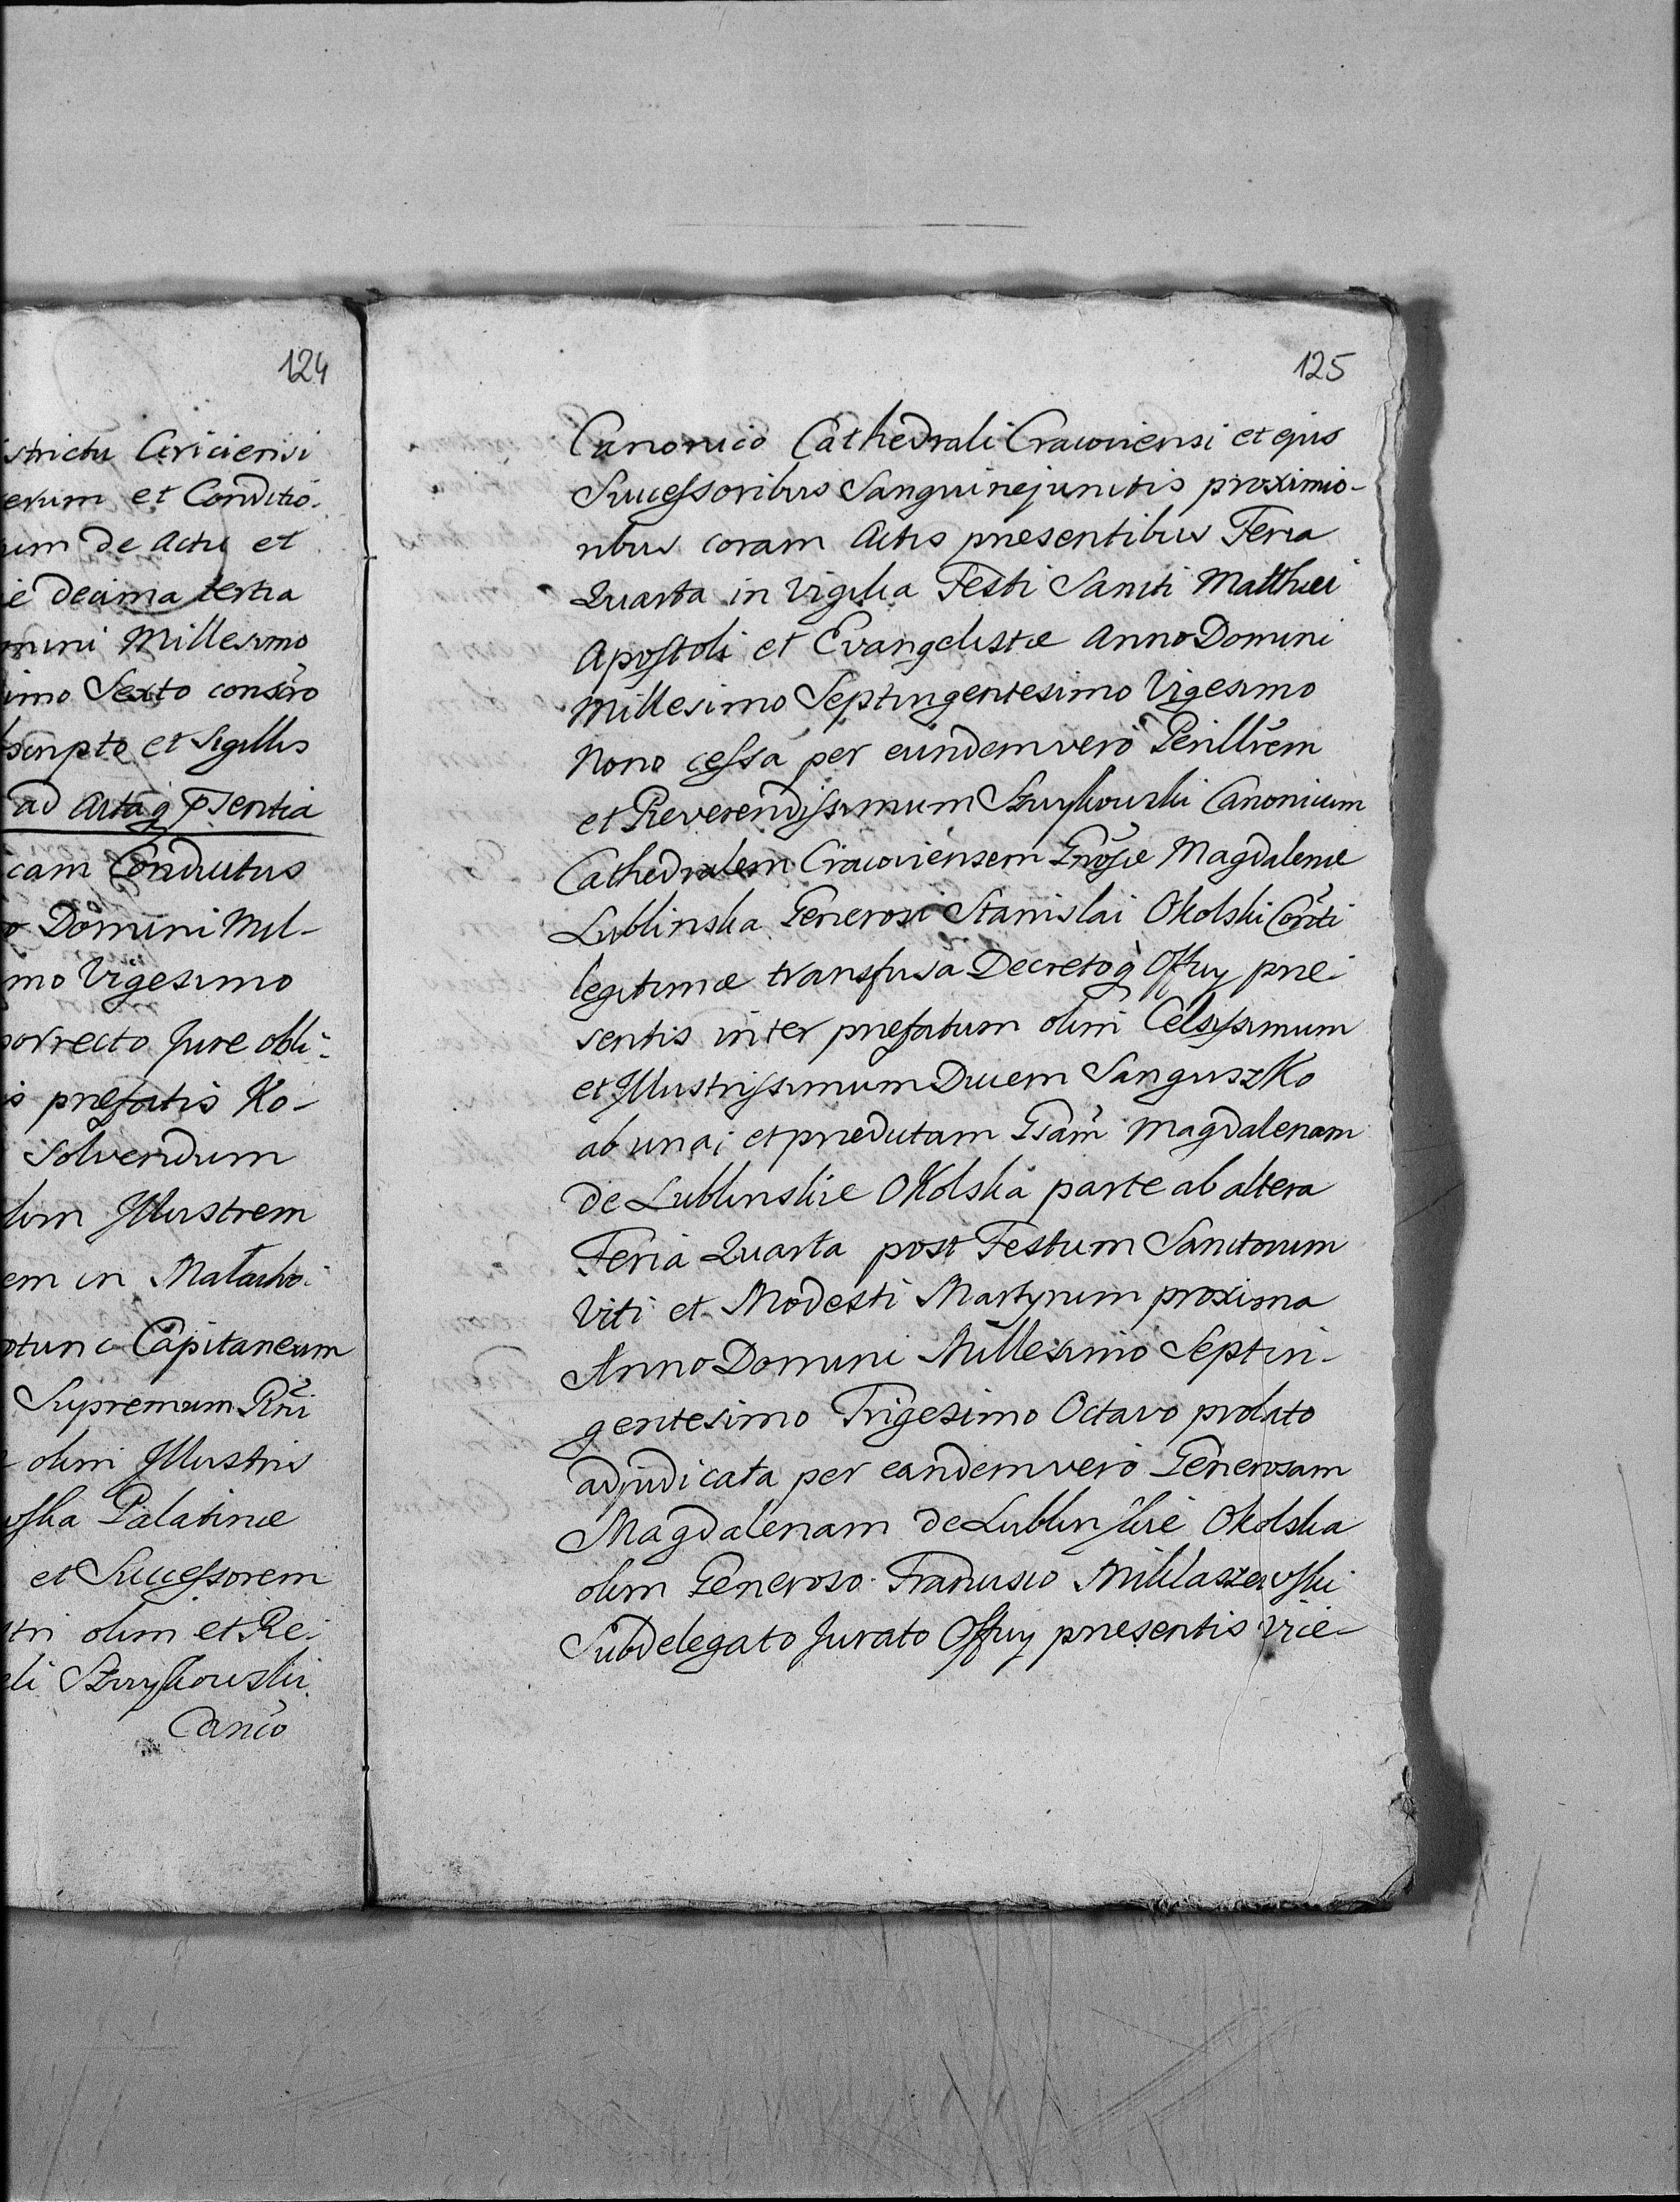 124
strictu Criciensi
erum et Conditio-
um de Actu et
e Decima tertia
mini Millesimo
imo Sexto consčro
scripto et Sigillis
ad Acta
cam Conductus
Domini Mil-
mo Vigesimo
porrecto Jure obli-
s prefatis Ko-
Solvendum
lim Illustrem
em in Matacho-
tunc Capitaneum
Supremum Rňi
olim Illustris
Palatinæ
et Successorem
tri olim et Re-
eli Szwykowski
Cančo
125
Canonico Cathedrali Cracoviensi et ejus
Successoribus Sanguinejunctis proximio-
ribus coram Actis præsentibus Feria
Quarta in Vigilia Festi Sancti Matthæi
Apostoli et Evangelistæ Anno Domini
Millesimo Septingentesimo Vigesimo
Nono cessa per eundemvero Perillřem
et Reverendissimum Szwykowski Canonicum
Cathedralem Cracoviensem Gňosæ Magdalenæ
Lublinska Generosi Stanislai Okolski Coňti
legitimæ transfusa Decretoq Offuy præ-
sentis inter præfatum olim Celsissimum
et Illustrissimum Ducem Sanguszko
ab una et prædictam Gsam Magdalenam
de Lublinskie Okolska parte ab altera
Feria Quarta post Festum Sanctorum
Viti et Modesti Martyrum proxima
Anno Domini Millesimo Septin-
gentesimo Trigesimo Octavo prolato
adjudicata per eandemvero Generosam
Magdalenam de Lublinskie Okolska
olim Generoso Francisco Miklaszewski
Subdelegato Jurato Offuy præsentis Vice-